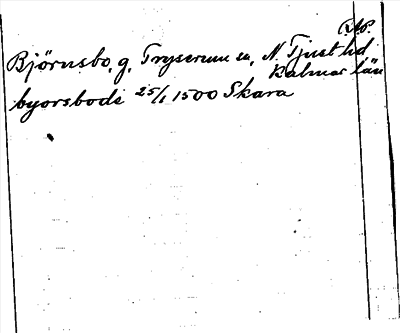 RAP.
Björnsbo, g, Tryserum sn, N. Tjust hd
Kalmar län
byorsbode 25/1 1500 Skara